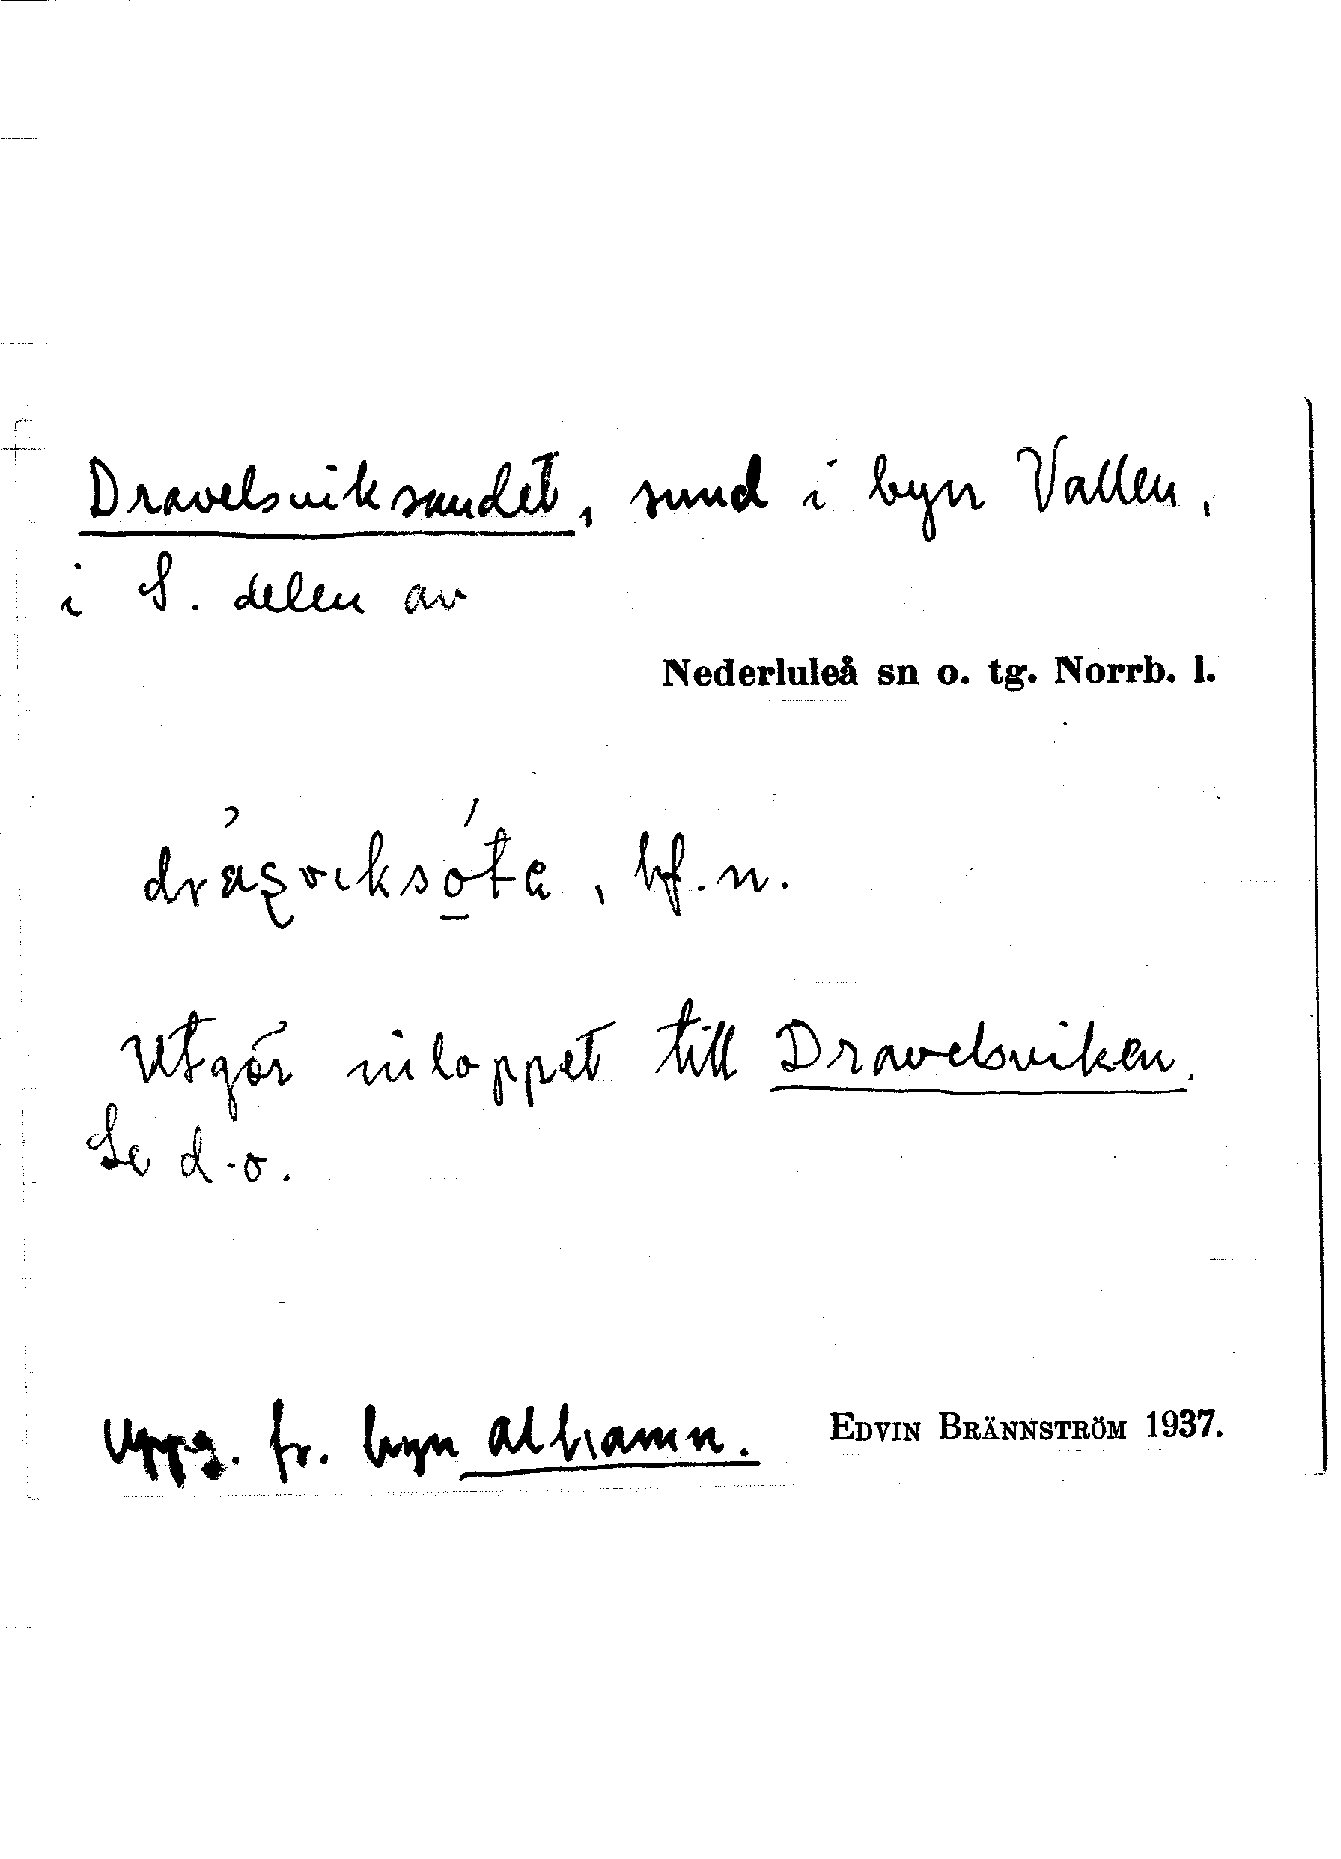 Dravelsviksundet, sund i byn Vallen,
i S. delen av
Nederluleå sn o. tg. Norrb. l.
bf. n.
Utgör inloppet till Dravelsviken.
Se d.o.
Uppg. fr. byn Alhamn. EDVIN BRÄNNSTRÖM 1937.